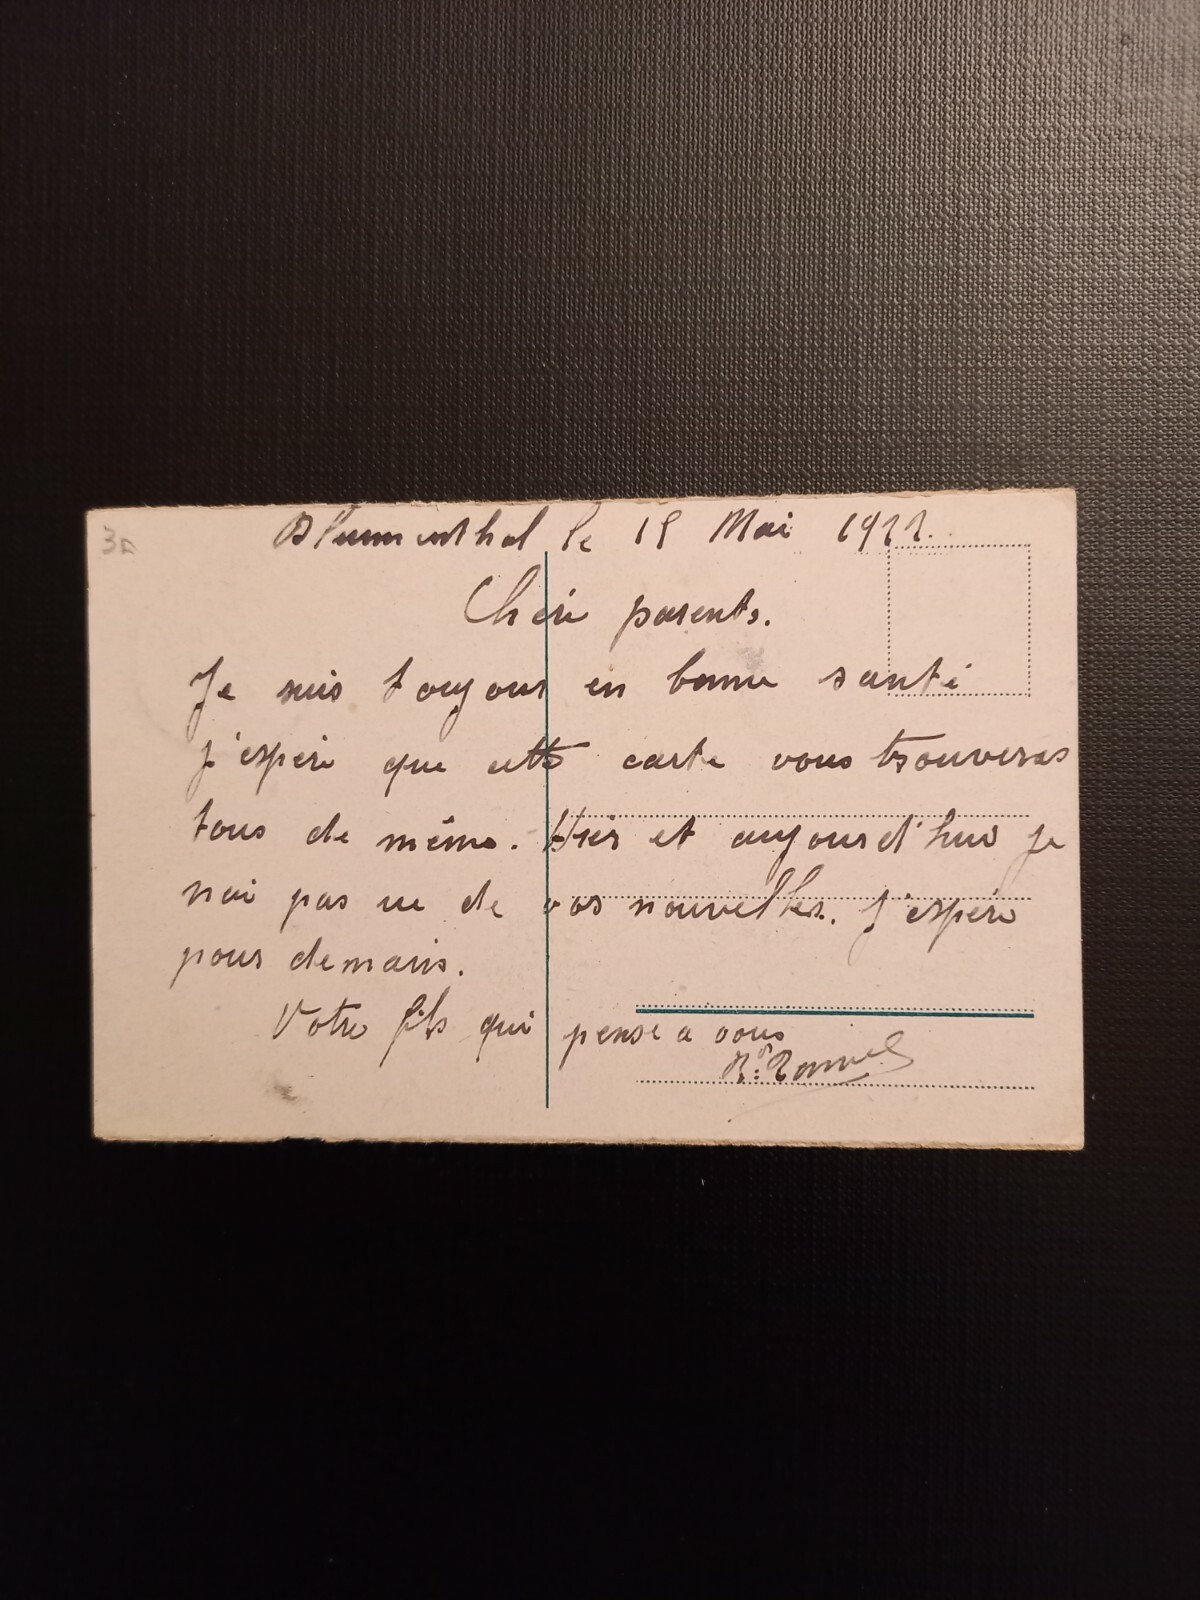 Blumenthal le 15 Mai 1922.
Chéri parents.
Je suis toujour en bonne santé
j'espère que cette carte vous trouveras
tous de même. Hier et aujourd'hui je
n'ai pas eu de vos nouvelles. J'espère
pour demain.
Votre fils qui pense a vous